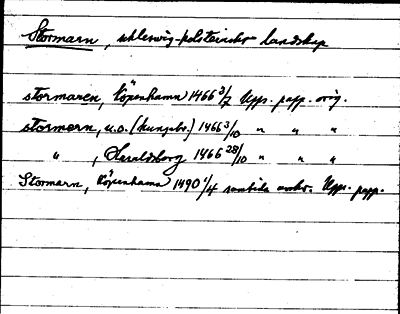 Stormarn, schleswig-holsteinskt landskap
stormaren, Köpenhamn 1466 3/7 Upps. papp. orig.
stormern, u.o. (kungsbr.) 1466 3/10 " " "
" , Haraldsborg 1466 28/10 " " "
Stormarn, Köpenhamn 1490 1/4 samtida avskr. Upps. papp.